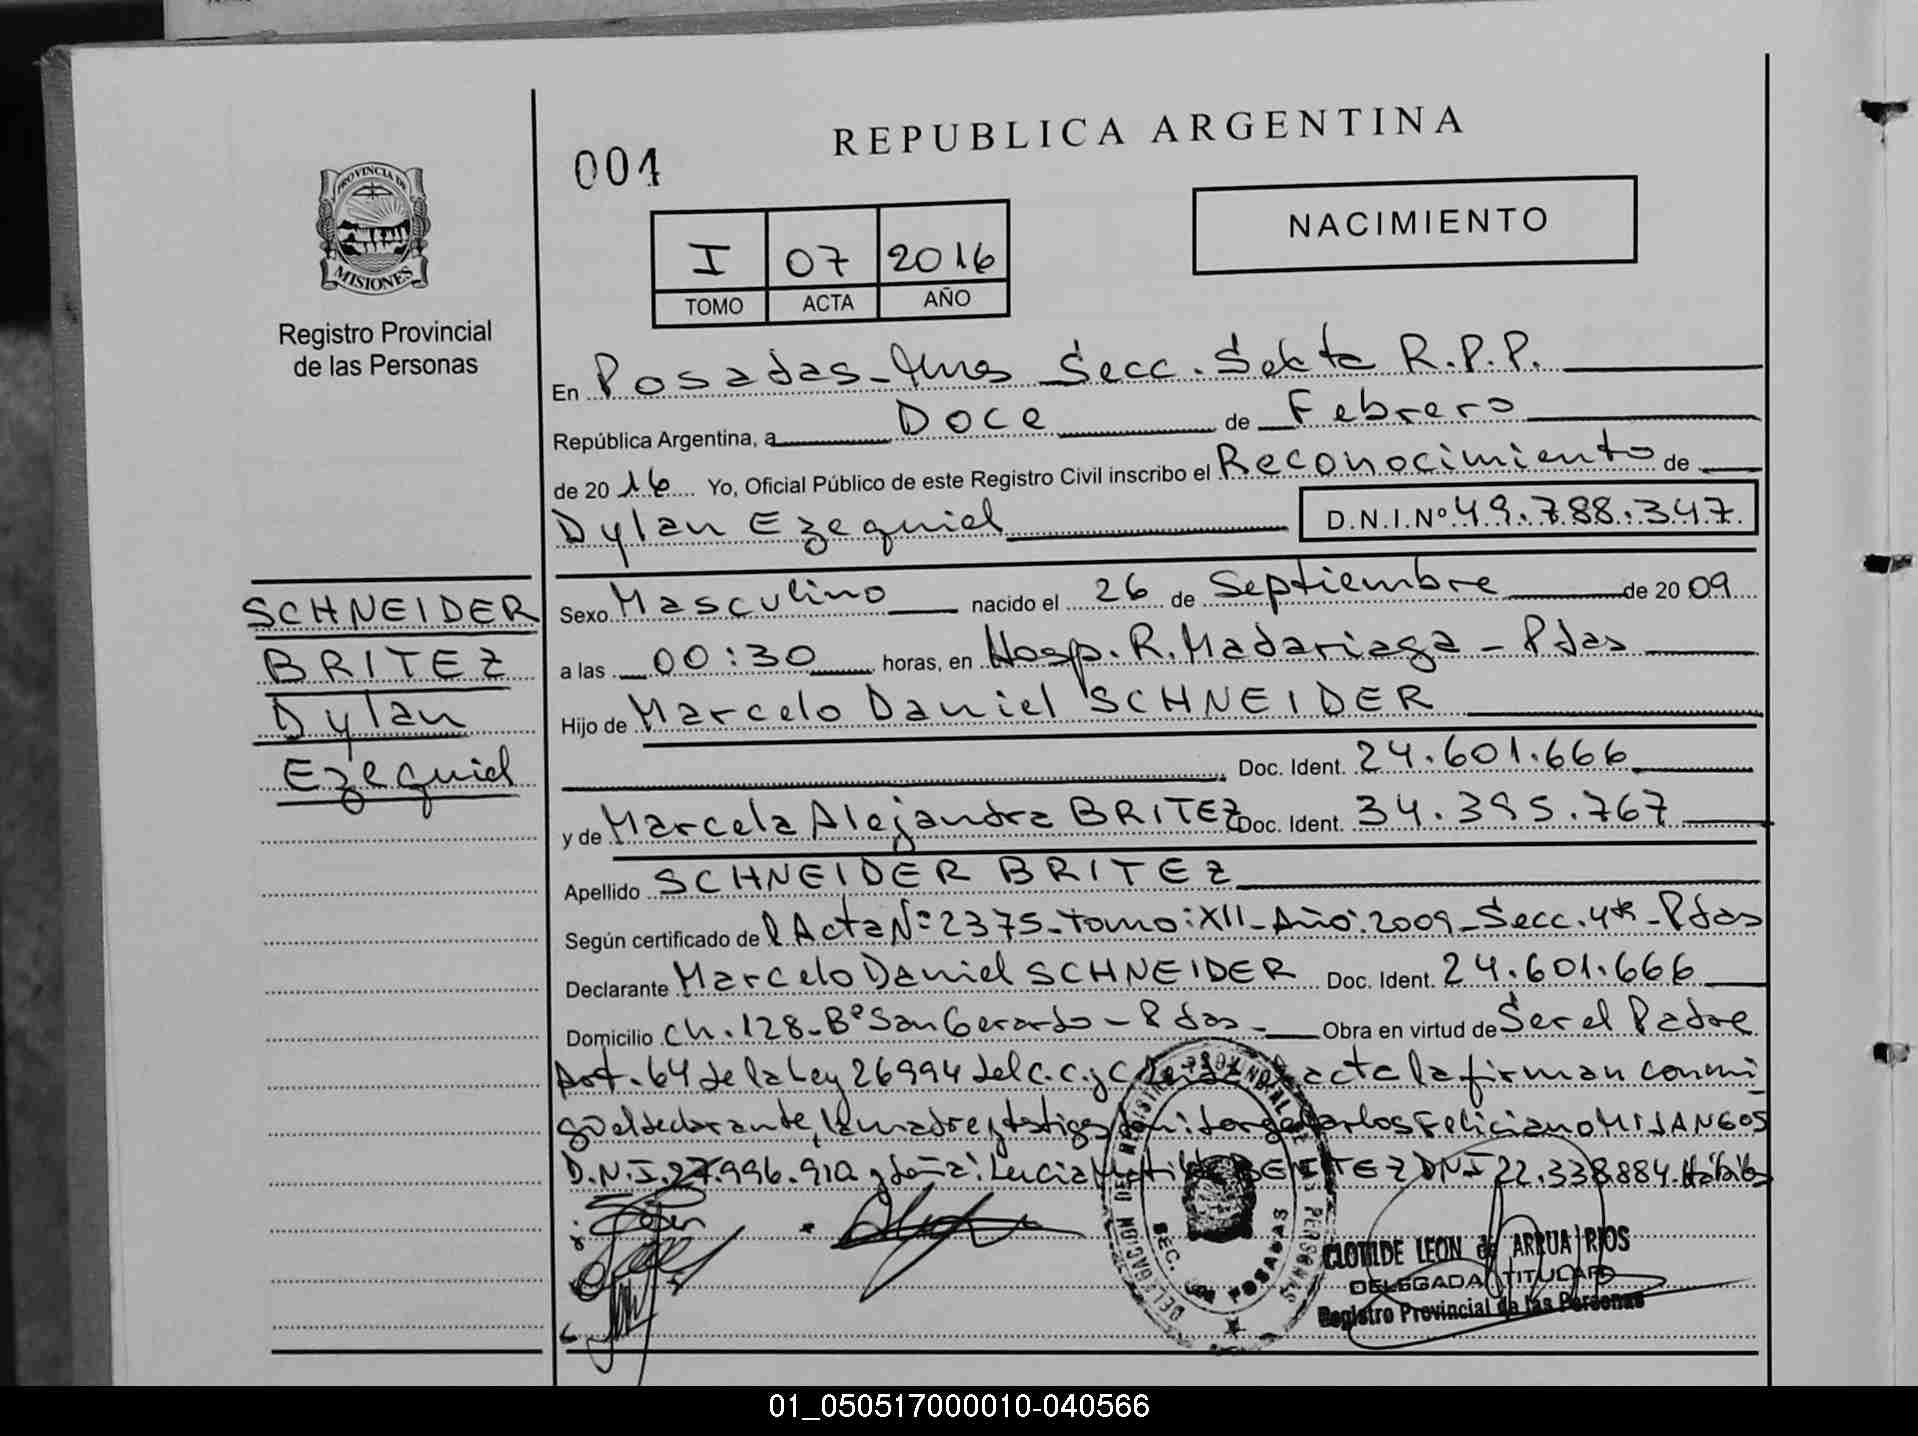 PROVINCIA DE
MISIONES
Registro Provincial
de las Personas
SCHNEIDER
BRITEZ
Dylan
Ezequiel
004
REPUBLICA ARGENTINA
I 07 2016
TOMO ACTA AÑO
NACIMIENTO
En Posadas - Mnes Secc. Sexta R.P.P.
República Argentina, a Doce de Febrero
de 2016 Yo, Oficial Público de este Registro Civil inscribo el Reconocimiento de
Dylan Ezequiel D.N.I.Nº 49.788.347
Sexo Masculino nacido el 26 de Septiembre de 2009
a las 00:30 horas, en Hosp. R. Madariaga - Pdas
Hijo de Marcelo Daniel SCHNEIDER
Doc. Ident. 24.601.666
y de Marcela Alejandra BRITEZ Doc. Ident. 34.395.767
Apellido SCHNEIDER BRITEZ
Según certificado de l Acta Nº 2375 - Tomo: XII - Año: 2009 - Secc. 4ª - Pdas
Declarante Marcelo Daniel SCHNEIDER Doc. Ident. 24.601.666
Domicilio Ch. 128 - Bº San Gerardo - Pdas - Obra en virtud de Ser el Padre
Art. 64 de la Ley 26994 del C.C. y C. acta la firman conmi
go el declarante, la madre y testigos Don: Jorge Carlos Feliciano MIJANGOS
D.N.I. 27.996.910 y doña: Lucia BENITEZ DNI 22.338.884. Hábiles
DELEGACION DEL REGISTRO PROVINCIAL DE LAS PERSONAS
SEC. POSADAS
CLOTILDE LEON de ARRUA RIOS
DELEGADA TITULAR
Registro Provincial de las Personas
01_050517000010-040566